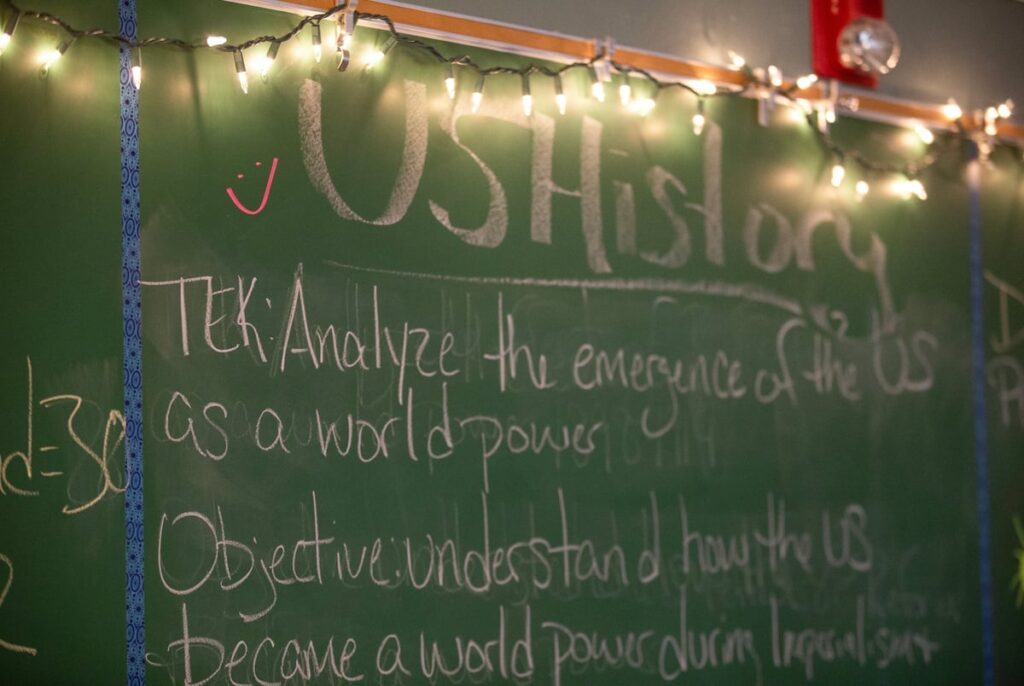 US History
TEK: Analyze the emergence of the US
as a world power
Objective: understand how the US
became a world power during Imperialism
d=30
2